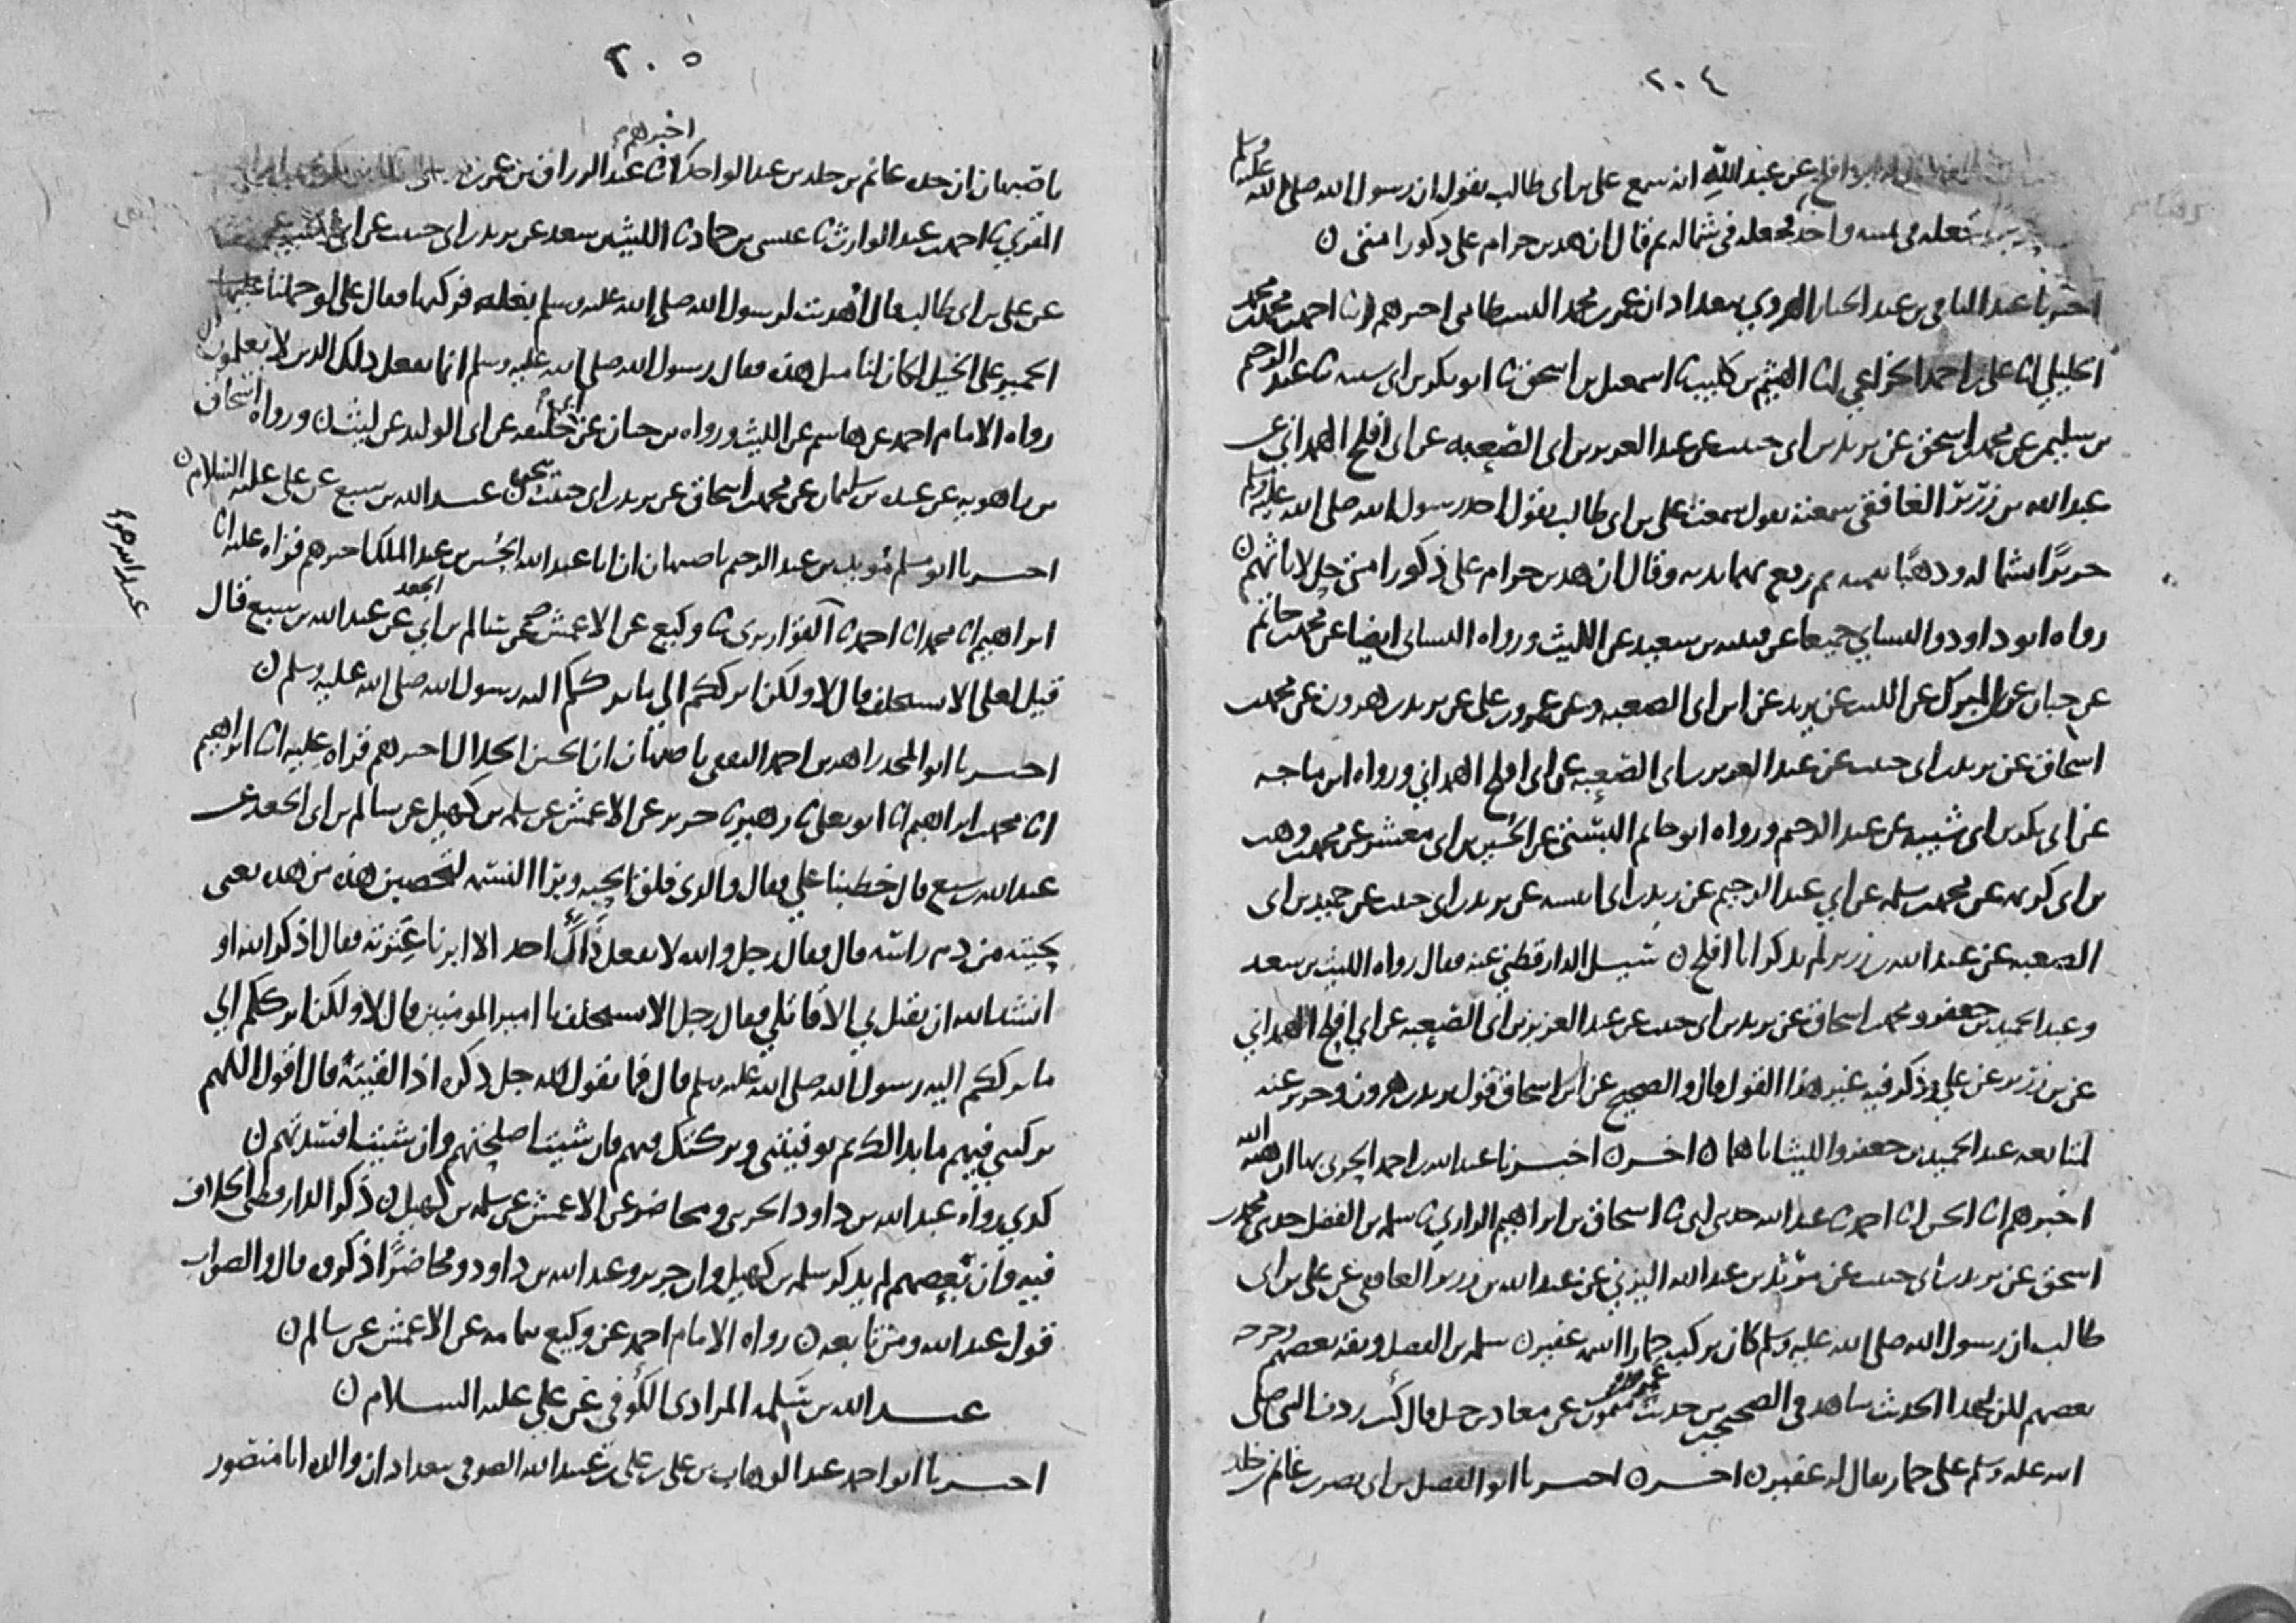 ٢٠٤
عن عبد الله انه سمع على بن ابى طالب يقول ان رسول الله صلى الله عليه وسلم
فجعله فى يمينه واخذ فجعله فى شماله ثم قال ان هذين حرام على ذكور امتى ن
اخبرنا عبد الباقى بن عبد الجبار الهروي ببغداد ان عمر بن محمد البسطامى اخبرهم انا احمد بن محمد بن محمد
الخليلي انا على بن احمد الخزاعي انا الهيثم بن كليب ثا اسمعيل بن اسحق ثا ابو بكر بن ابى شيبه ثا عبد الرحيم
بن سليمن عن محمد بن اسحق عن يزيد بن ابى حبيب عن عبد العزيز بن ابى الصعبه عن ابى افلح الهمداني عن
عبد الله بن زرير الغافقى سمعته يقول سمعت على بن ابى طالب يقول اخذ رسول الله صلى الله عليه وسلم
حريرًا بشماله وذهبًا بيمينه ثم رفع بهما يديه وقال ان هذين حرام على ذكور امتى حل لاناثهم ن
رواه ابو داود والنساي جميعا عن قتيبه بن سعيد عن الليث ورواه النسائى ايضا عن محمد بن حاتم
عن حبان عن ابن المبرك عن الليث عن يزيد عن ابن ابى الصعبه وعن عمرو بن على عن يزيد بن هرون عن محمد بن
اسحاق عن يزيد بن ابى حبيب عن عبد العزيز بن ابى الصعبه عن ابى افلح الهمداني ورواه ابن ماجه
عن ابى بكر بن ابى شيبه عن عبد الرحيم ورواه ابو حاتم البستي عن الحسين بن ابى معشر عن محمد بن وهب
بن ابى كريمه عن محمد بن سلمه عن ابي عبد الرحيم عن زيد بن ابى انيسه عن يزيد بن ابى حبيب عن حميد بن ابى
الصعبه عن عبد الله بن زرير لم يذكر ابا افلح ن سُيل الدارقطني عنه فقال رواه الليث بن سعد
وعبد الحميد بن جعفر ومحمد بن اسحاق عن يزيد بن ابى حبيب عن عبد العزيز بن ابى الصعبه عن ابي افلح الهمداني
عن بن زرير عن علي وذكر فيه غير هذا القول قال والصحيح عن ابن اسحاق قول يزيد بن هرون وجرير عنه
لمتابعه عبد الحميد بن جعفر والليث اياهما ن اخر ن اخبرنا عبد الله بن احمد الحربى بها ان هبه الله
اخبرهم انا الحسن انا احمد ثا عبد الله حدثنى ابى ثا اسحاق بن ابراهيم الرازي ثا سلمه بن الفضل حدثنى محمد بن
اسحق عن يزيد بن ابى حبيب عن مرثد بن عبد الله اليزني عن عبد الله بن زرير الغافقى عن على بن ابى
طالب ان رسول الله صلى الله عليه وسلم كان يركب حمارا اسمه عفير ن سلمه بن الفضل وثقه بعضهم وجرحه
بعضهم لكن لهذا الحديث شاهد فى الصحيحين من حديث عمرو بن ميمون عن معاذ بن جبل قال كنت ردف النبى صلى
الله عليه وسلم على حمار يقال له عفير ن اخر ن اخبرنا ابو الفضل بن ابى نصر بن غانم بن خلد
٢٠٥
باصبهان ان جده غانم بن خلد بن عبد الواحد اخبرهم انا عبد الرزاق بن عمر
المقري ثا احمد بن عبد الوارث ثا عيسى بن حماد ثا الليث بن سعد عن يزيد بن ابى حبيب عن ابى
عن على بن ابى طالب قال اهديت لرسول الله صلى الله عليه وسلم بغله فركبها فقال على لو حملنا
الحمير على الخيل لكان لنا مثل هذه فقال رسول الله صلى الله عليه وسلم انما يفعل ذلك الذين لا يعلمون
رواه الامام احمد عن هاشم عن الليث ورواه بن حبان عن ابى خليفه عن ابى الوليد عن ليث ن ورواه اسحاق
بن راهويه عن عبده بن سليمان عن محمد بن اسحاق عن يزيد بن ابى حبيب بنحوه ن عبد الله بن سبيع عن على عليه السلام ن
اخبرنا ابو مسلم مؤيد بن عبد الرحيم باصبهان ان ابا عبد الله الحسين بن عبد الملك اخبرهم قراه عليه انا
ابراهيم انا محمد انا احمد ثا القواريرى ثا وكيع عن الاعمش عن سالم بن ابي الجعد عن عبد الله بن سبيع قال
قيل لعلى الا تستخلف قال لا ولكنى اترككم الي ما ترككم اليه رسول الله صلى الله عليه وسلم ن
اخبرنا ابو المجد زاهر بن احمد الثقفى باصبهان ان الحسين الخلال اخبرهم قراه عليه انا ابراهيم
انا محمد بن ابراهيم انا ابو يعلى ثا زهير ثا جرير عن الاعمش عن سلمه بن كهيل عن سالم بن ابى الجعد عن
عبد الله بن سبيع قال خطبنا علي فقال والذى فلق الحبه وبرا النسمه لتخضبن هذه من هذه يعنى
لحيته من دم راسه قال فقال رجل والله لا يفعل ذاك احد الا ابرنا عترته فقال اذكر الله او
انشد الله ان يقتل بي الا قاتلي فقال رجل الا تستخلف يا امير المومنين قال لا ولكنى اترككم الي
ما ترككم اليه رسول الله صلى الله عليه وسلم قال فما تقول لله جل ذكره اذا لقيته قال اقول اللهم
تركتني فيهم ما بدا لك ثم توفيتنى وتركتك فيهم فان شيت اصلحتهم وان شيت افسدتهم ن
كذي رواه عبد الله بن داود الخريبى ومحاضر عن الاعمش عن سلمه بن كهيل ن ذكر الدارقطنى الخلاف
فيه وان بعضهم لم يذكر سلمه بن كهيل وان جرير وعبد الله بن داود ومحاضرًا ذكروه قال والصواب
قول عبد الله ومن تابعه ن رواه الامام احمد عن وكيع بتمامه عن الاعمش عن سالم ن
عبد الله بن سَلِمه المرادى الكوفى عن علي عليه السلام ن
اخبرنا ابو احمد عبد الوهاب بن على بن على بن عبيد الله الصوفى ببغداد ان والده ابا منصور